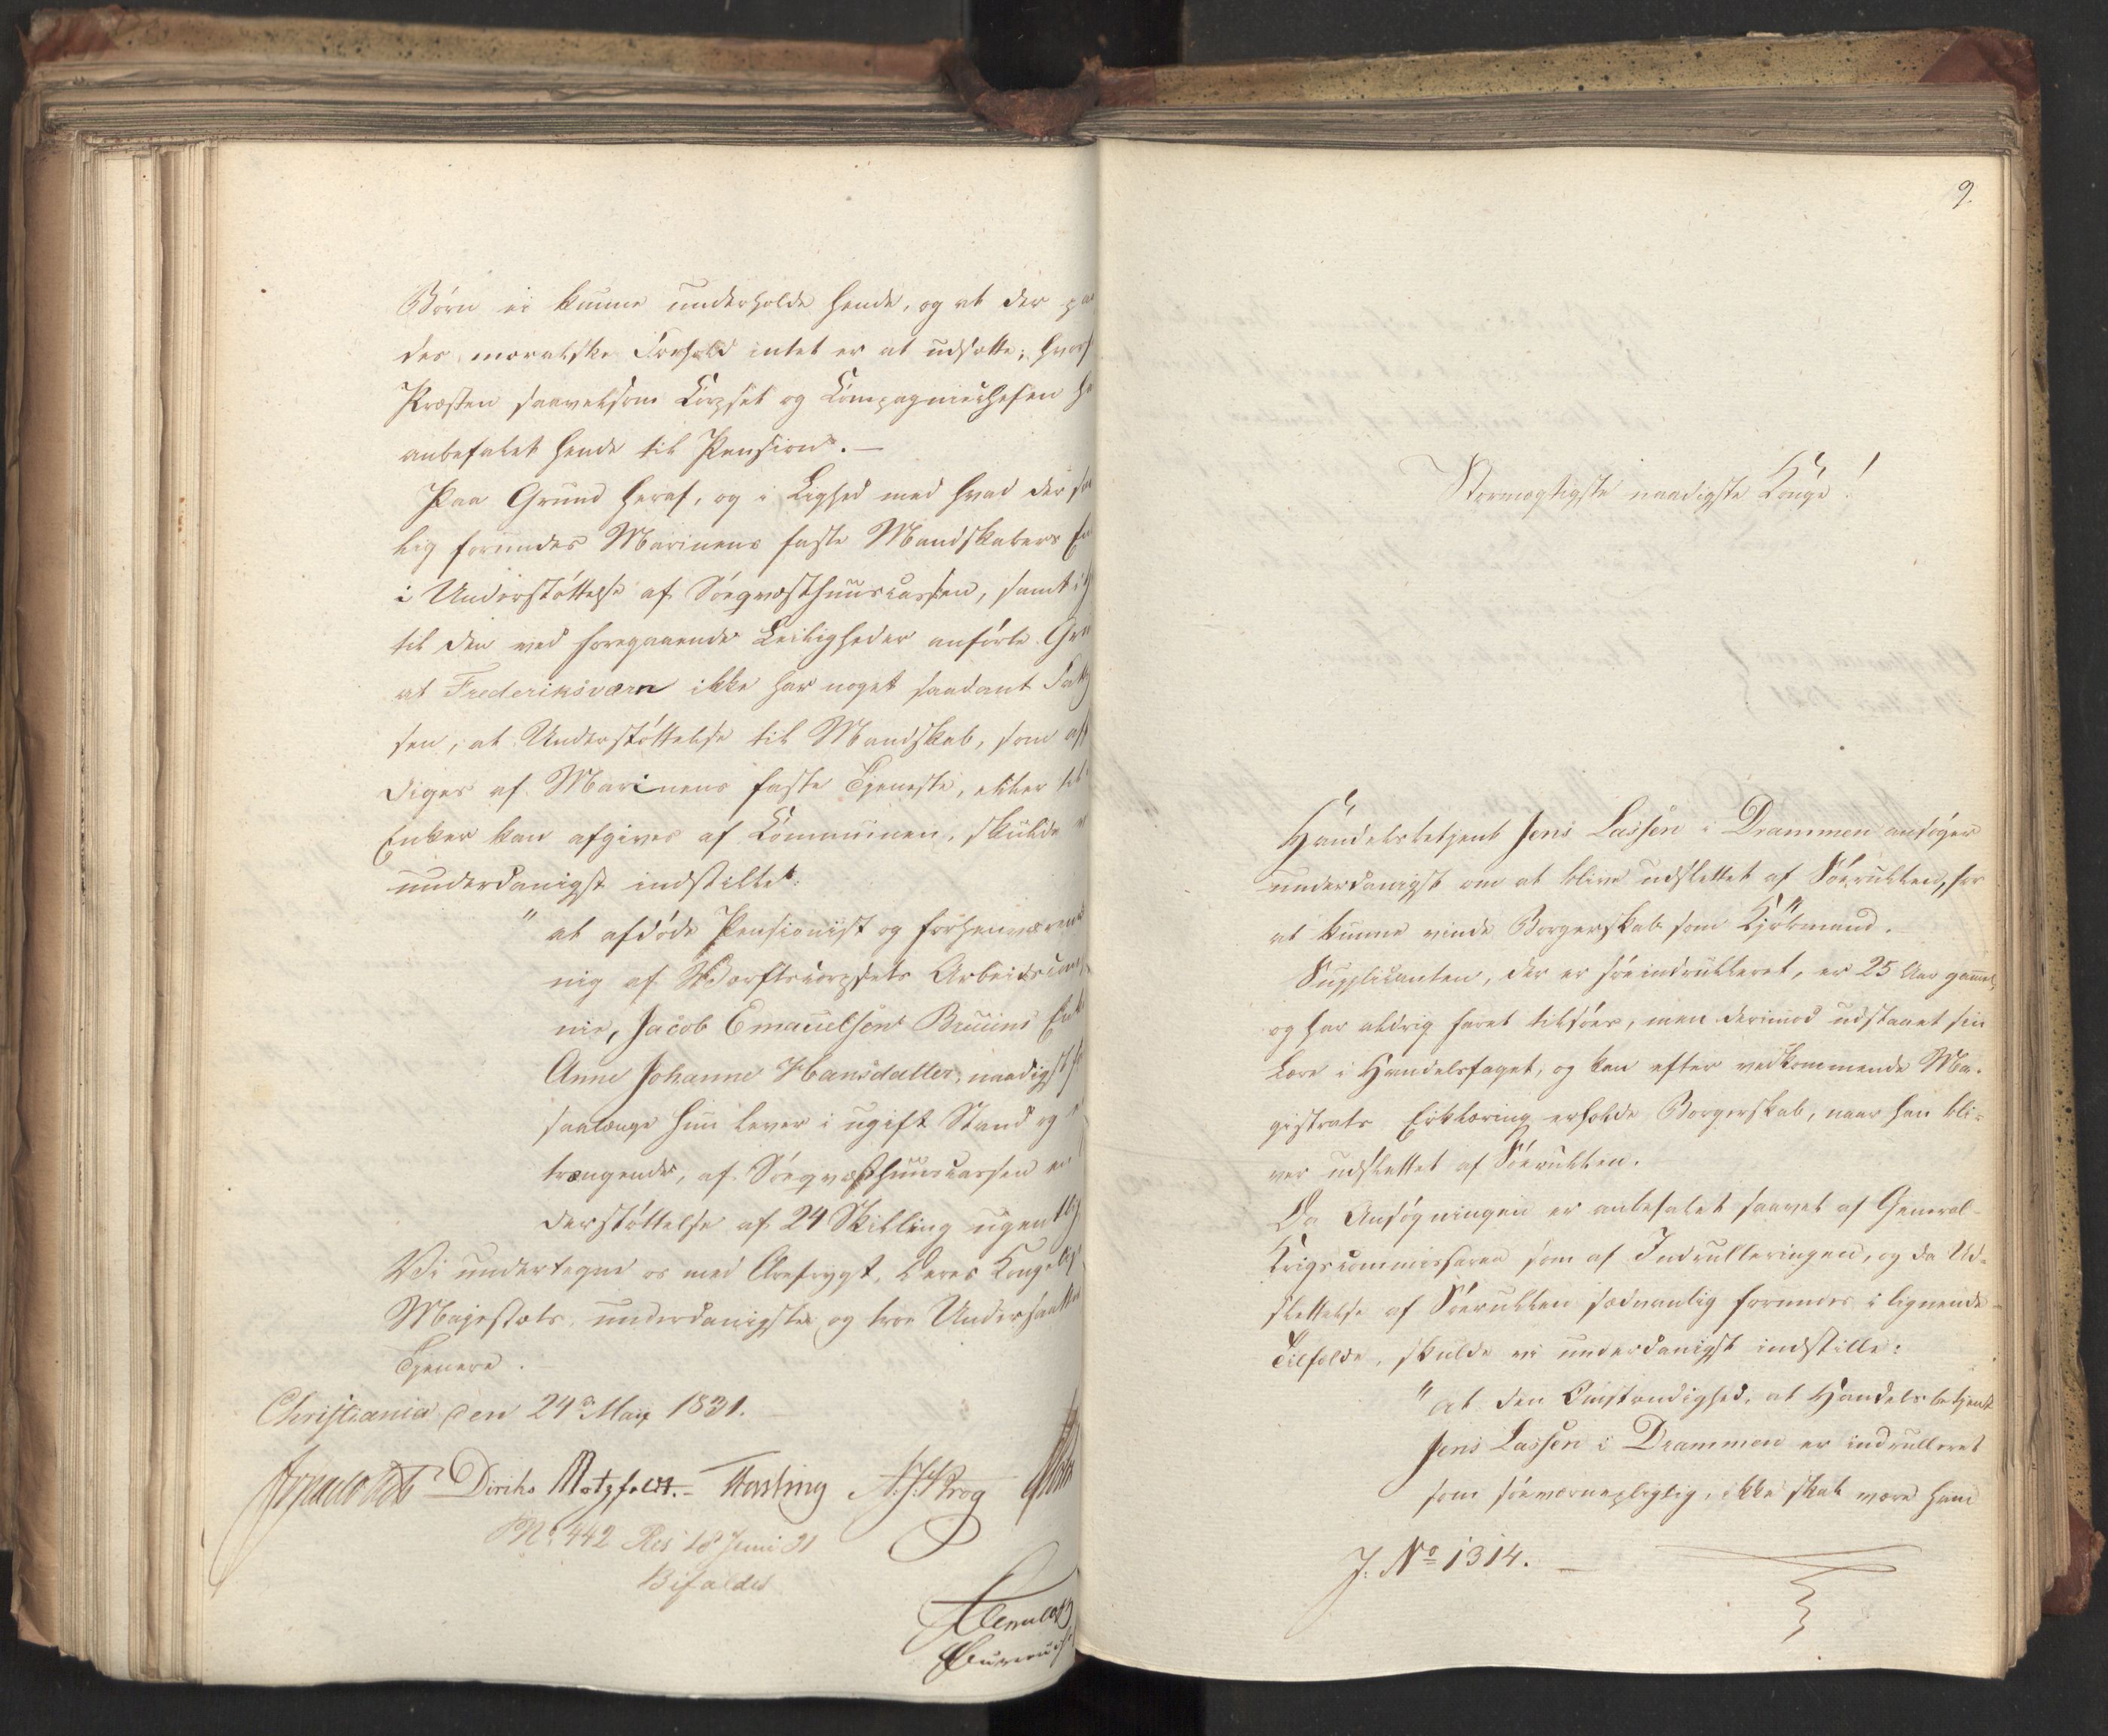 Børn ei kunne underholde hende, og at der paa
des moralske Forhold intet er at udsætte; hvorf
Præsten saavelsom Corpset og Compagniechefen ha
anbefalet hende til Pension. —
Paa Grund heraf, og i Lighed med hvad der sæ
lig forundes Marinens faste Mandskabers En
i Understøttelse af Søeqvæsthuuscassen, samt i H
til den ved foregaaende Leiligheder anførte Gru
at Frederiksværn ikke har noget saadant Fatt
sen, at Understøttelse til Mandskab, som afs
diges af Marinens faste Tjeneste, eller til
Enker kan afgives af Communen, skulde v
underdanigst indstille:
" at afdøde Pensionist og forhenværend
nig af Værftscorpsets Arbeidscom
nie, Jacob Emanuelsen Bruuns Enk
Anne Johanne Hansdatter, naadigst f
saalænge hun lever i ugift Stand og
trængende, af Søeqvæsthuuscassen en
derstøttelse af 24 Skilling ugentlig
Vi undertegne os med Ærefrygt, Deres Kongelig
Majestæts, underdanigste og troe Undersaatter
Tjenere.
Christiania den 24de May 1831.
Diriks Motzfeldt. Fasting A. J. Krog
No 442 Res 18 Juni 31
Bifaldes
9.
Stormægtigste naadigste Konge!
Handelsbetjent Jens Lassen i Drammen ansøger
underdanigst om at blive udslettet af Søerullen, for
at kunne vinde Borgerskab som Kjøbmand.
Supplicanten, der er søeindrulleret, er 25 Aar gammel,
og har aldrig faret tilsøes, men derimod udstaaet sin
Lære i Handelsfaget, og kan efter vedkommende Ma-
gistrats Erklæring erholde Borgerskab, naar han bli-
ver udslettet af Søerullen.
Da Ansøgningen er anbefalet saavel af General-
Krigscommissairen som af Indrulleringen, og da Ud-
slettelse af Søerullen sædvanlig forundes i lignende
Tilfælde, skulde vi underdanigst indstille:
" at den Omstændighed, at Handelsbetjent
Jens Lassen i Drammen er indrulleret
som søeværnepligtig, ikke skal være ham
J. No 1314. —